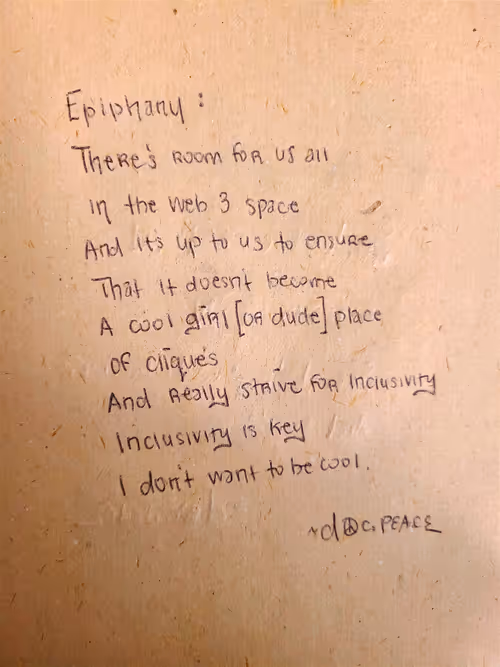 Epiphany :
There's room for us all
in the web 3 space
And it's up to us to ensure
That it doesn't become
A cool girl [or dude] place
of cliqués
And really strive for inclusivity
Inclusivity is key
I don't want to be cool.
~d☮c. PEACE